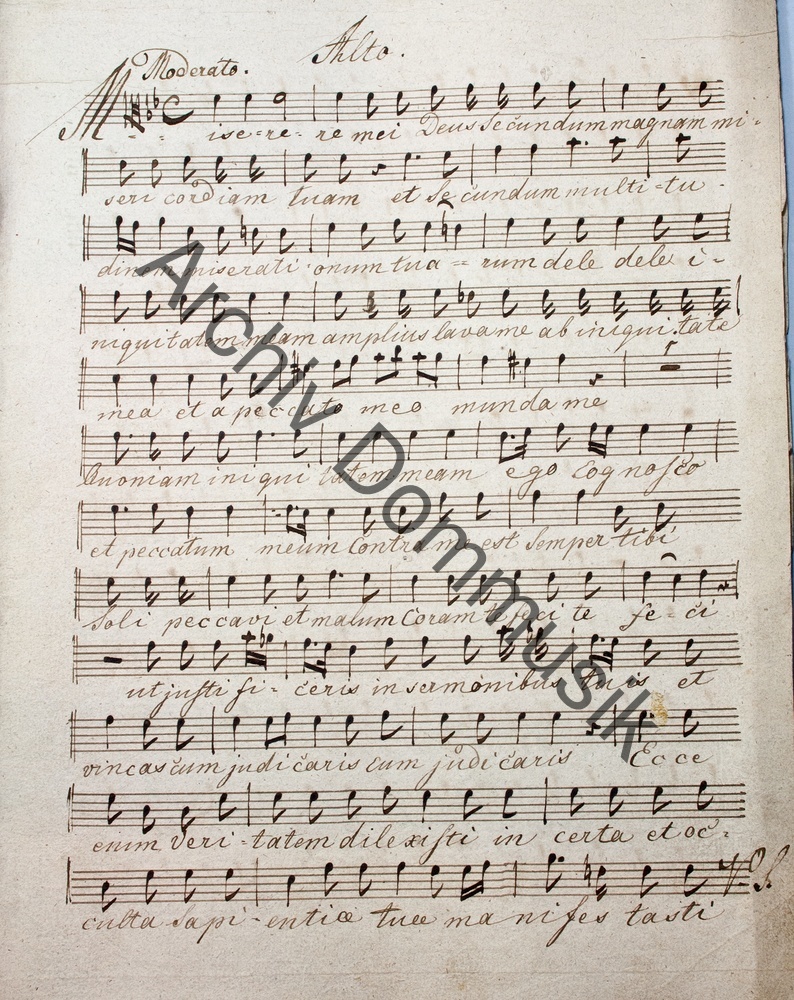 Alto.
Moderato.
Mise=re- re mei Deus Secundum magnam mi-
seri cordiam tuam et Secundum multi-tu-
dinem miserati-onum tua = rum dele dele i-
niquitatem meam amplius lava me ab iniqui.tate
mea et a peccato meo munda me
Quoniam iniqui tatem meam ego Cognosco
et peccatum meum Contra me est Semper tibi
Soli peccavi et malum Coram te feci te fe=ci
ut justi fi- ceris in sermonibus tuis et
vincas cum judicaris cum judicaris Ecce
enim Veri-tatem dilexisti in certa et oc-
culta Sapi-entiæ tuæ mani fes tasti
V. S.
Archiv Dommusik